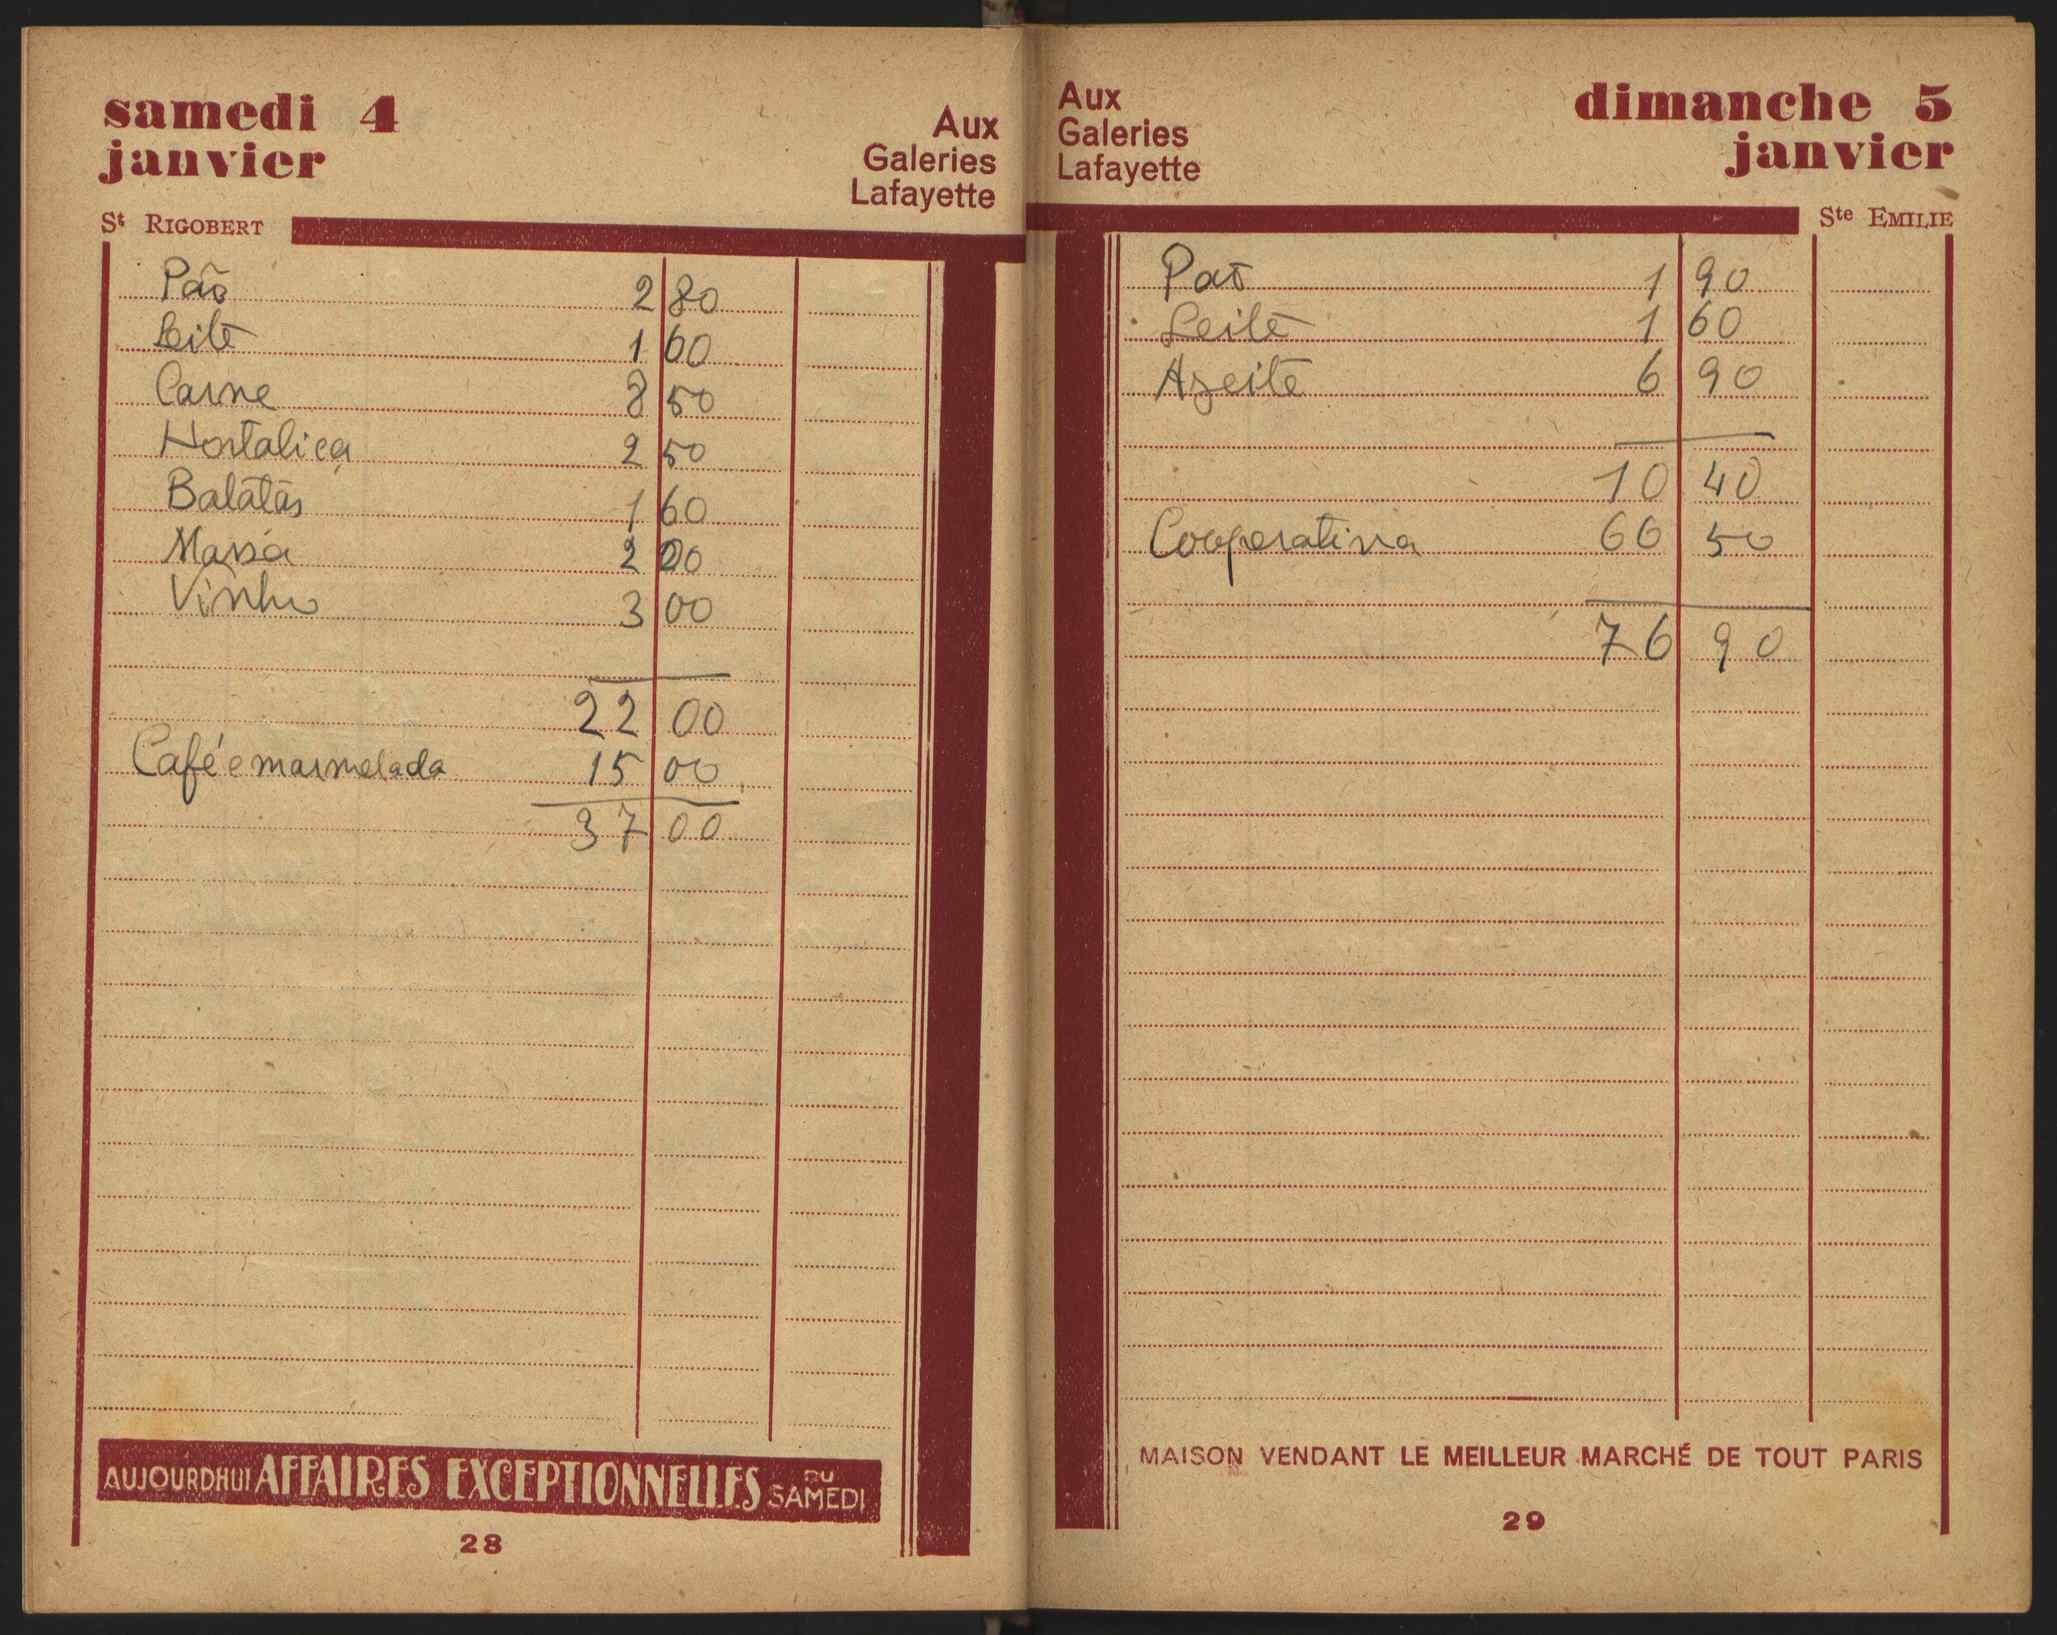 samedi 4
janvier
Aux
Galeries
Lafayette
St RIGOBERT
Pão 2 80
Leite 1 60
Carne 8 50
Hortaliça 2 50
Batatas 1 60
Massa 2 00
Vinho 3 00
22 00
Café e marmelada 15 00
37 00
AUJOURDHUI AFFAIRES EXCEPTIONNELLES DU SAMEDI
28
Aux
Galeries
Lafayette
dimanche 5
janvier
Ste EMILIE
Pão 1 90
Leite 1 60
Azeite 6 90
10 40
Cooperativa 66 50
76 90
MAISON VENDANT LE MEILLEUR MARCHÉ DE TOUT PARIS
29